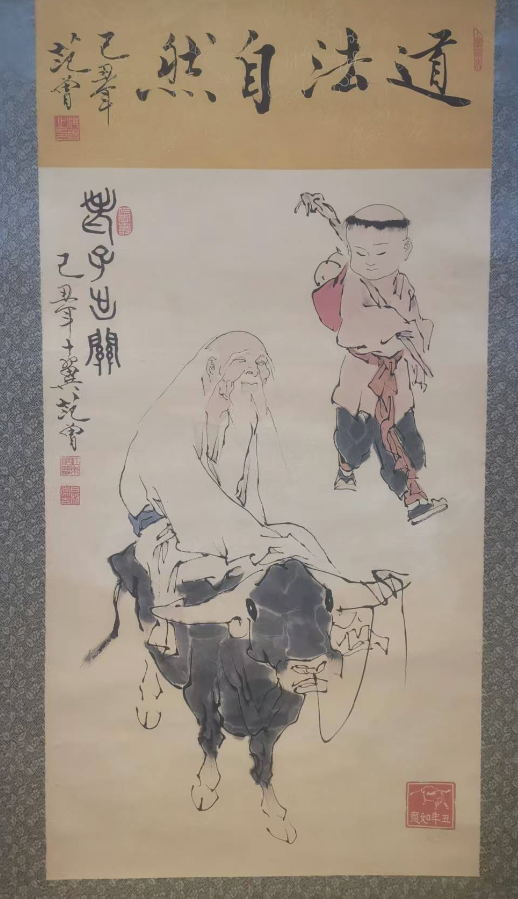 道法自然
己丑年
范曾
老子出關
己丑年十翼范曾
丑年如意